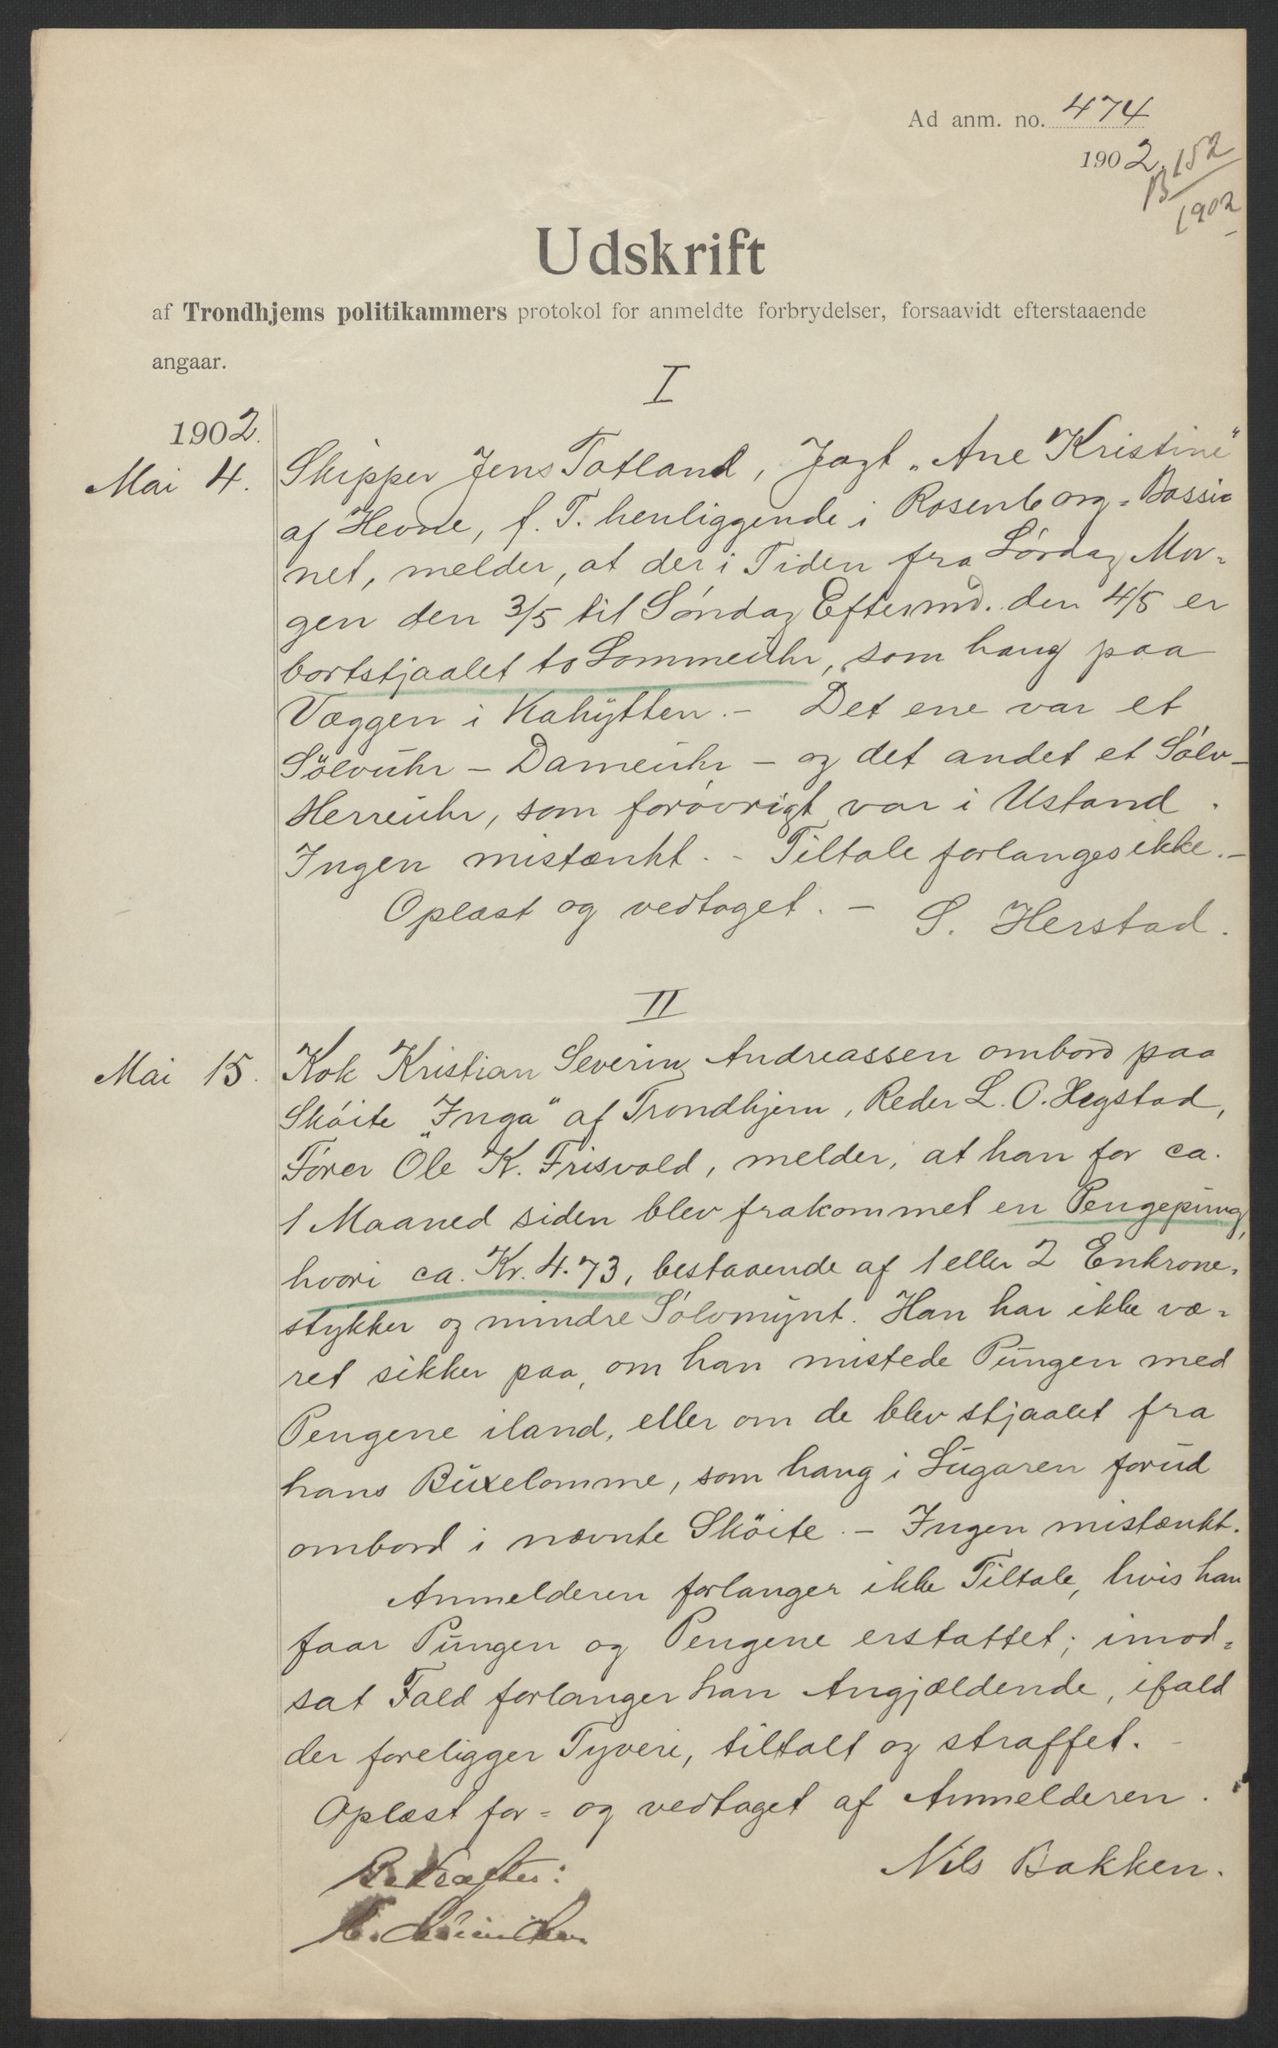 Ad anm. no. 474
1902.
B 152
1902
Udskrift
af Trondhjems politikammers protokol for anmeldte forbrydelser, forsaavidt efterstaaende
angaar.
I
1902.
Mai 4. Skipper Jens Totland, Jagt „Ane Kristine"
af Hevne, f. T. henliggende i Rosenborg-Bassi-
net, melder, at der i Tiden fra Lørdag Mor-
gen den 3/5 til Søndag Eftermd. den 4/5 er
bortstjaalet to Lommeuhr, som hang paa
Væggen i Kahytten. - Det ene var et
Sölvuhr - Dameuhr - og det andet et Sölv-
Herreuhr, som forøvrigt var i Ustand.
Ingen mistænkt. - Tiltale forlanges ikke. -
Oplæst og vedtaget. - S. Herstad.
II
Mai 15. Kok Kristian Severin Andreassen ombord paa
Sköite „Inga" af Trondhjem, Reder L. O. Hegstad,
Fører Ole K. Frisvold, melder, at han for ca.
1 Maaned siden blev frakommet en Pengepung,
hvori ca. Kr. 4.73, bestaaende af 1 eller 2 Enkrone-
stykker og mindre Sölvmynt. Han har ikke væ-
ret sikker paa, om han mistede Pungen med
Pengene iland, eller om de blev stjaalet fra
hans Buxelomme, som hang i Lugaren forud
ombord i nævnte Sköite. - Ingen mistænkt.
Anmelderen forlanger ikke Tiltale, hvis han
faar Pungen og Pengene erstattet; imod-
sat Fald forlanger han Angjældende, ifald
der foreligger Tyveri, tiltalt og straffet. -
Oplæst for- og vedtaget af Anmelderen.
Nils Bakken.
Bekræftes: